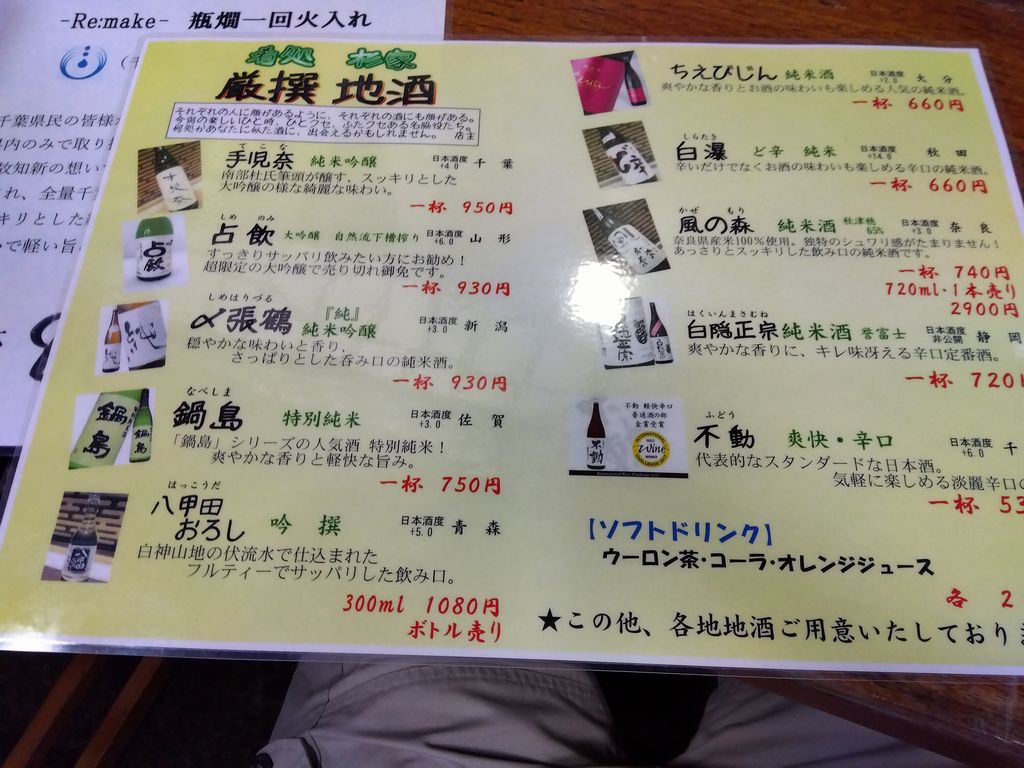 -Re:make- 瓶燗一回火入れ
千葉県民の皆様
内のみで取り
致知新の想い
れ、全量千
キリとした
で軽い旨
酒処 杉家
厳撰 地酒
それぞれの人に顔があるように、それぞれの酒にも顔がある。
今宵の楽しいひと時、ひとクセ、ふたクセある名脇役たち。
何処かあなたに似た酒に、出会えるかもしれません。 店主
てこな
手児奈 純米吟醸 日本酒度 +4.0 千葉
南部杜氏筆頭が醸す、スッキリとした
大吟醸の様な綺麗な味わい。
一杯 950円
しめ のみ
占飲 大吟醸 自然流下槽搾り 日本酒度 +6.0 山形
すっきりサッパリ飲みたい方にお勧め!
超限定の大吟醸で売り切れ御免です。
一杯 930円
しめはりづる
〆張鶴 『純』 純米吟醸 日本酒度 +3.0 新潟
穏やかな味わいと香り、
さっぱりとした呑み口の純米酒。
一杯 930円
なべしま
鍋島 特別純米 日本酒度 +3.0 佐賀
「鍋島」シリーズの人気酒 特別純米!
爽やかな香りと軽快な旨み。
一杯 750円
はっこうだ
八甲田
おろし 吟撰 日本酒度 +5.0 青森
白神山地の伏流水で仕込まれた
フルティーでサッパリした飲み口。
300ml 1080円
ボトル売り
ちえびじん 純米酒 日本酒度 +2.0 大分
爽やかな香りとお酒の味わいも楽しめる人気の純米酒。
一杯 660円
しらたき
白瀑 ど辛 純米 日本酒度 +14.0 秋田
辛いだけでなくお酒の味わいも楽しめる辛口の純米酒。
一杯 660円
かぜ もり
風の森 純米酒 秋津穂 65% 日本酒度 +3.0 奈良
奈良県産米100%使用。独特のシュワリ感がたまりません!
あっさりとスッキリした飲み口の純米酒です。
一杯 740円
720ml・1本売り
2900円
はくいんまさむね
白隠正宗 純米酒 誉富士 日本酒度 非公開 静岡
爽やかな香りに、キレ味冴える辛口定番酒。
一杯 720
不動 軽快辛口
普通酒の部
金賞受賞
ふどう
不動 爽快・辛口 日本酒度 +6.0 千
代表的なスタンダードな日本酒。
気軽に楽しめる淡麗辛口の
一杯 53
【ソフトドリンク】
ウーロン茶・コーラ・オレンジジュース
各 2
★この他、各地地酒ご用意いたしており